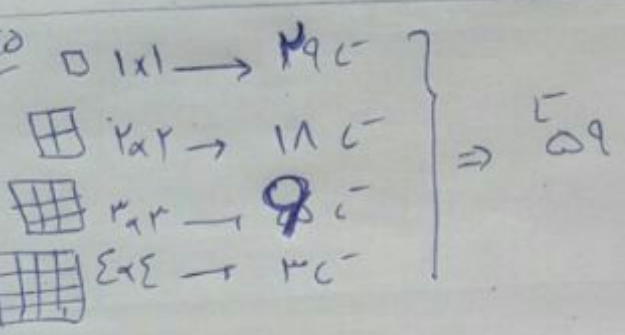 ۱x۱ → ۲۹ تا
۲x۲ → ۱۸ تا
۳x۳ → ۹ تا
٤x٤ → ۳ تا
⇒ ۵۹ تا